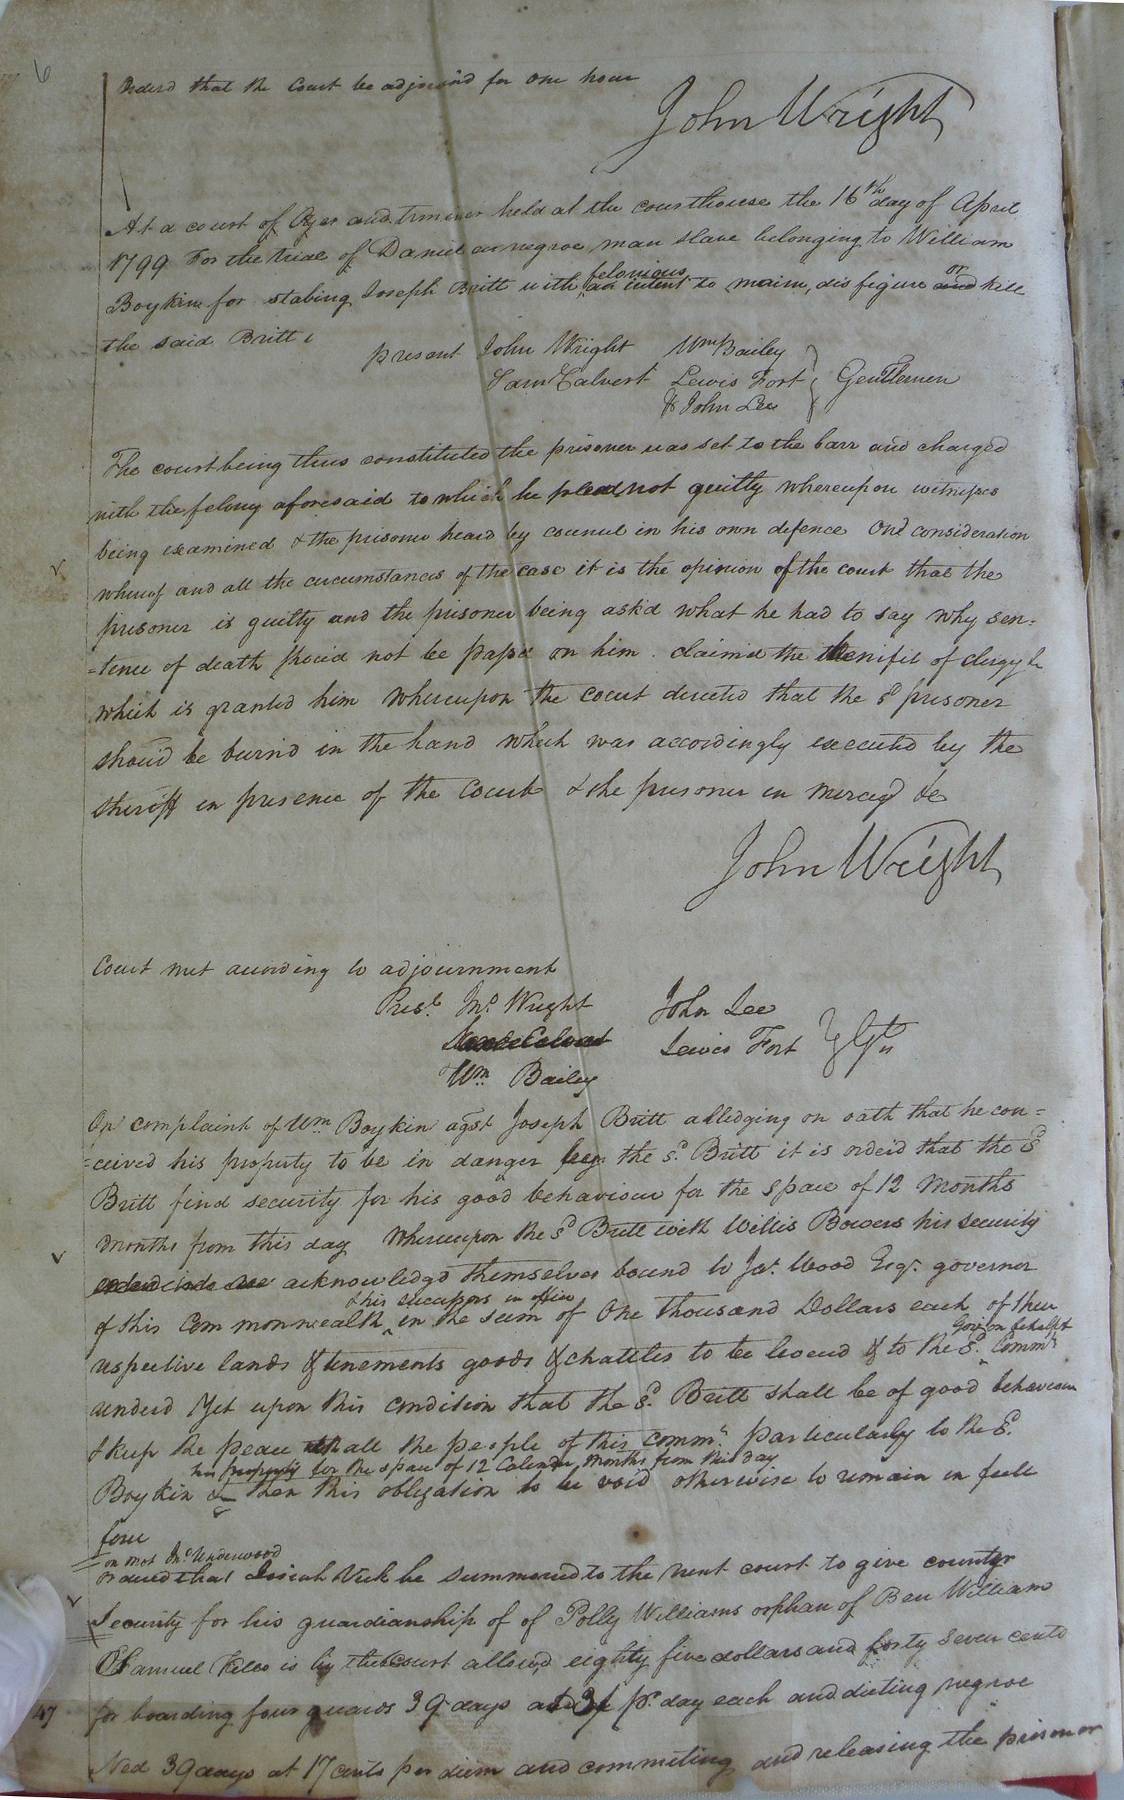 6
Orderd that the Court be adjournd for one hour
John Wright
At a court of Oyer and terminer held at the courthouse the 16th day of April
1799 For the trial of Daniel a negroe man slave belonging to William
Boykin for stabing Joseph Britt with felonious intent to maim, disfigure or kill
the said Britt
present John Wright Wm Bailey
Saml Calvert Lewis Fort Gentlemen
& John Lee
The court being thus constituted the prisoner was set to the barr and charged
with the felony aforesaid to which he plead not guilty whereupon witnesses
being examined & the prisoner heard by council in his own defence On consideration
whereof and all the circumstances of the case it is the opinion of the court that the
prisoner is guilty and the prisoner being askd what he had to say why sen=
=tence of death shou'd not be passd on him claimed the benifit of clergy
which is granted him whereupon the court directed that the sd prisoner
shou'd be burn'd in the hand which was accordingly executed by the
sheriff in presence of the Court & the prisoner in mercy &c
John Wright
Court met according to adjournment
Prest. Jno. Wright John Lee
Lewis Fort Gtn
Wm. Bailey
On complaint of Wm Boykin agst Joseph Britt alledging on oath that he con=
=ceived his property to be in danger from the sd. Britt it is orderd that the sd
Britt find security for his good behaviour for the space of 12 months
months from this day whereupon the sd Britt with Willis Bowers his security
acknowledgd themselves bound to Jas. Wood Esqr. governor
& his successors in office
of this Commonwealth in the sum of One thousand Dollars each of their
Govr on behalf of
respective lands & tenements goods & chattles to be levied & to the sd. Commth
renderd Yet upon this condition that the sd. Britt shall be of good behaviour
& keep the peace with all the people of this commth. particularly to the sd.
his property for the space of 12 Calendr months from this day
Boykin & then this obligation to be void otherwise to remain in full
force
on mot Jno Underwood
ordered that Josiah Vick be summoned to the next court to give counter
security for his guardianship of of Polly Williams orphan of Ben William
Samuel Kello is by the court allowd eighty five dollars and forty seven cents
47
for boarding four guards 39 days at 3/ pr. day each and dieting negroe
Ned 39 days at 17 cents per diem and commiting and releasing the prisoner